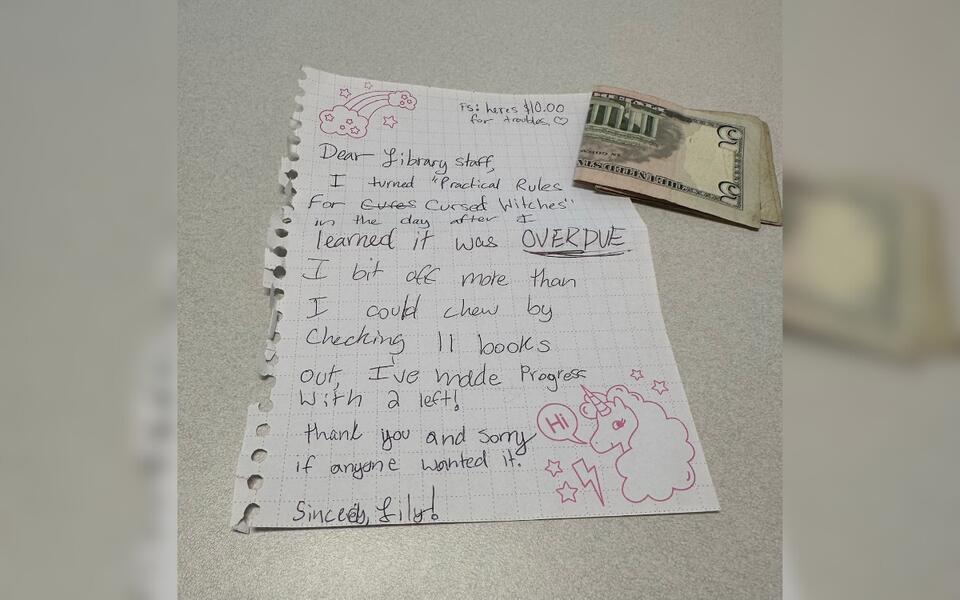 Ps: heres $10.00
for troubles, ♡
Dear Library staff,
I turned "Practical Rules
For Cures Cursed Witches"
in the day after I
learned it was OVERDUE.
I bit off more than
I could chew by
Checking 11 books
out, I've made Progress
With 2 left!
thank you and sorry
if anyone wanted it.
Sincerely, Lily!
Hi
5
5
THE UNITED STATES